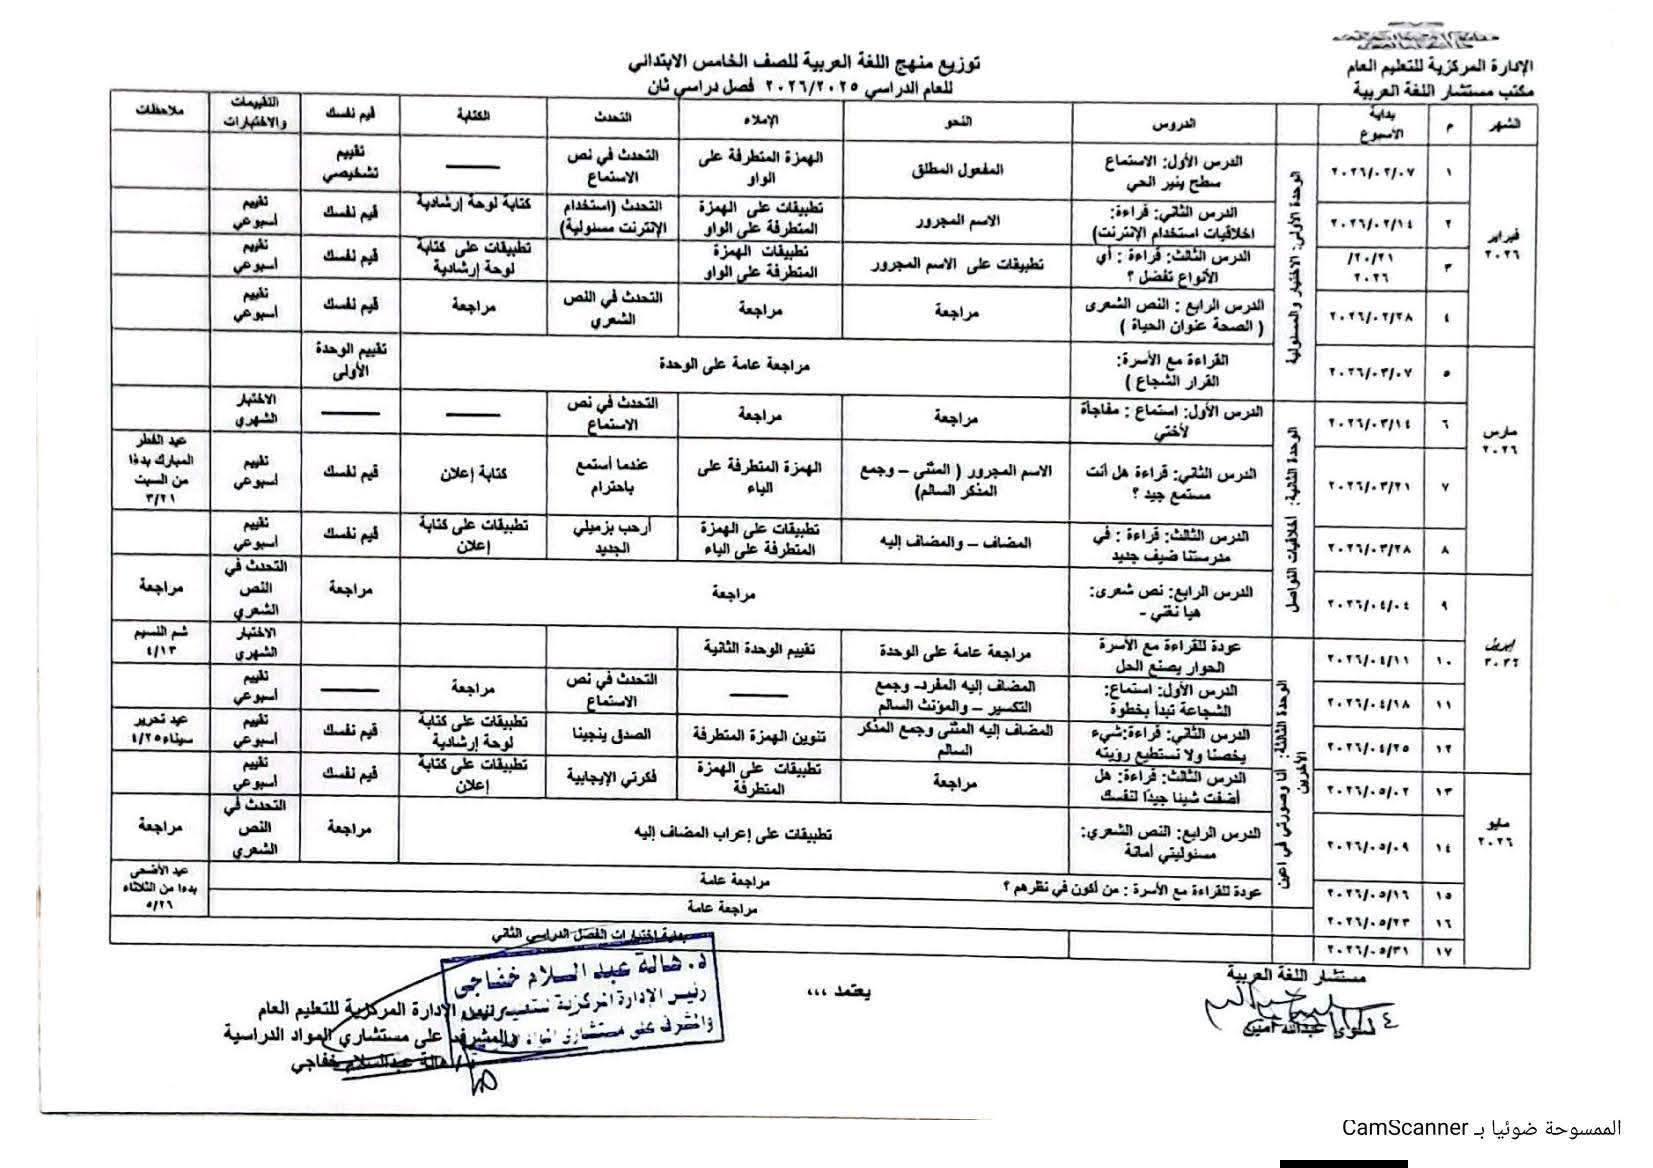 الإدارة المركزية للتعليم العام
مكتب مستشار اللغة العربية
توزيع منهج اللغة العربية للصف الخامس الابتدائي
للعام الدراسي ٢٠٢٦/٢٠٢٥ فصل دراسي ثان
الشهر م بداية الأسبوع الدروس النحو الإملاء التحدث الكتابة قيم نفسك التقييمات والاختبارات ملاحظات
فبراير ٢٠٢٦
الوحدة الأولى: الاختيار والمسئولية
١ ٢٠٢٦/٠٢/٠٧ الدرس الأول: الاستماع سطح ينير الحي المفعول المطلق الهمزة المتطرفة على الواو التحدث في نص الاستماع —— تقييم تشخيصي
٢ ٢٠٢٦/٠٢/١٤ الدرس الثاني: قراءة: اخلاقيات استخدام الإنترنت) الاسم المجرور تطبيقات على الهمزة المتطرفة على الواو التحدث (استخدام الإنترنت مسئولية) كتابة لوحة إرشادية قيم نفسك تقييم أسبوعي
٣ ٢٠/٢١/ ٢٠٢٦ الدرس الثالث: قراءة : أي الأنواع تفضل ؟ تطبيقات على الاسم المجرور تطبيقات الهمزة المتطرفة على الواو تطبيقات على كتابة لوحة إرشادية قيم نفسك تقييم أسبوعي
٤ ٢٠٢٦/٠٢/٢٨ الدرس الرابع : النص الشعرى ( الصحة عنوان الحياة ) مراجعة مراجعة التحدث في النص الشعري مراجعة قيم نفسك تقييم أسبوعي
مارس ٢٠٢٦
٥ ٢٠٢٦/٠٣/٠٧ القراءة مع الأسرة: القرار الشجاع ) مراجعة عامة على الوحدة تقييم الوحدة الأولى
الوحدة الثانية: أخلاقيات التواصل
٦ ٢٠٢٦/٠٣/١٤ الدرس الأول: استماع : مفاجأة لأختي مراجعة مراجعة التحدث في نص الاستماع —— —— الاختبار الشهري
٧ ٢٠٢٦/٠٣/٢١ الدرس الثاني: قراءة هل أنت مستمع جيد ؟ الاسم المجرور ( المثنى – وجمع المذكر السالم) الهمزة المتطرفة على الياء عندما أستمع باحترام كتابة إعلان قيم نفسك تقييم أسبوعي عيد الفطر المبارك بدءا من السبت ٣/٢١
٨ ٢٠٢٦/٠٣/٢٨ الدرس الثالث: قراءة : في مدرستنا ضيف جديد المضاف – والمضاف إليه تطبيقات على الهمزة المتطرفة على الياء أرحب بزميلي الجديد تطبيقات على كتابة إعلان قيم نفسك تقييم أسبوعي
ابريل ٢٠٢٦
٩ ٢٠٢٦/٠٤/٠٤ الدرس الرابع: نص شعرى: هيا نغني - مراجعة مراجعة التحدث في النص الشعري مراجعة
١٠ ٢٠٢٦/٠٤/١١ عودة للقراءة مع الأسرة الحوار يصنع الحل مراجعة عامة على الوحدة تقييم الوحدة الثانية الاختبار الشهري شم النسيم ٤/١٣
الوحدة الثالثة: أنا وصورتي في أعين الآخرين
١١ ٢٠٢٦/٠٤/١٨ الدرس الأول: استماع: الشجاعة تبدأ بخطوة المضاف إليه المفرد– وجمع التكسير – والمؤنث السالم —— التحدث في نص الاستماع مراجعة —— تقييم أسبوعي
١٢ ٢٠٢٦/٠٤/٢٥ الدرس الثاني: قراءة:شيء يخصنا ولا نستطيع رؤيته المضاف إليه المثنى وجمع المذكر السالم تنوين الهمزة المتطرفة الصدق ينجينا تطبيقات على كتابة لوحة إرشادية قيم نفسك تقييم أسبوعي عيد تحرير سيناء ٤/٢٥
مايو ٢٠٢٦
١٣ ٢٠٢٦/٠٥/٠٢ الدرس الثالث: قراءة: هل أضفت شيئا جيدًا لنفسك مراجعة تطبيقات على الهمزة المتطرفة فكرتي الإيجابية تطبيقات على كتابة إعلان قيم نفسك تقييم أسبوعي
١٤ ٢٠٢٦/٠٥/٠٩ الدرس الرابع: النص الشعري: مسئوليتي أمانة تطبيقات على إعراب المضاف إليه مراجعة التحدث في النص الشعري مراجعة
١٥ ٢٠٢٦/٠٥/١٦ عودة للقراءة مع الأسرة : من أكون في نظرهم ؟ مراجعة عامة عيد الأضحى بدءا من الثلاثاء ٥/٢٦
١٦ ٢٠٢٦/٠٥/٢٣ مراجعة عامة
١٧ ٢٠٢٦/٠٥/٣١ بداية اختبارات الفصل الدراسي الثاني
مستشار اللغة العربية
عبدالله أمين
يعتمد ,,,
د. هالة عبد السلام خفاجى
رئيس الإدارة المركزية
والمشرف على مستشاري المواد
الإدارة المركزية للتعليم العام
والمشرف على مستشاري المواد الدراسية
هالة عبدالسلام خفاجي
الممسوحة ضوئيا بـ CamScanner